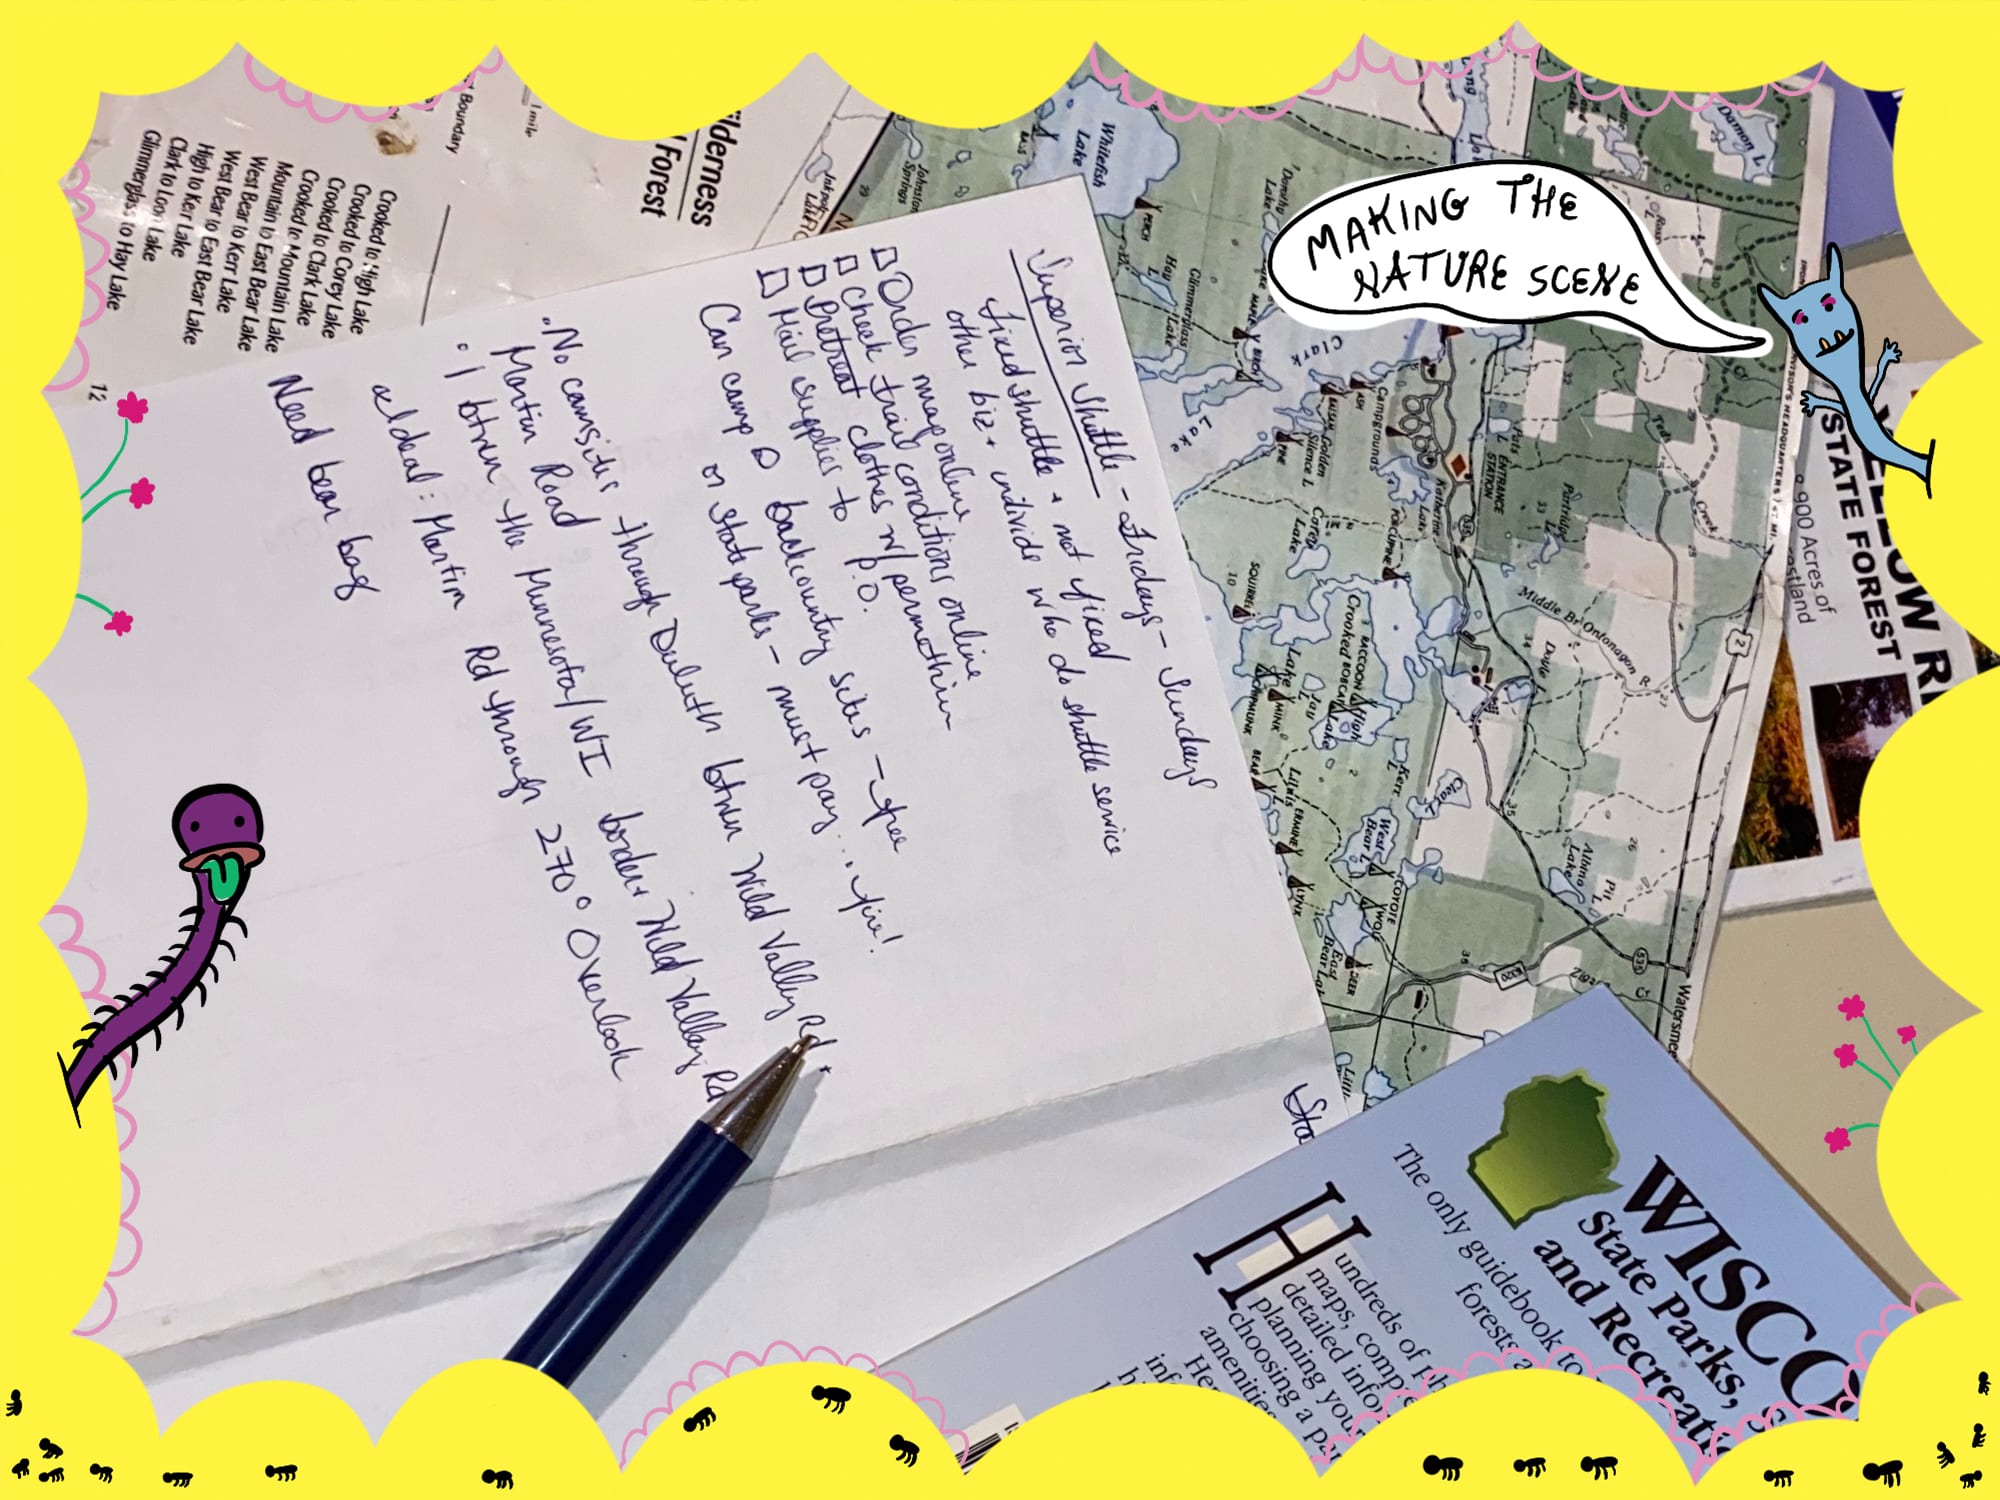 MAKING THE
NATURE SCENE
Superior Shuttle - Fridays - Sundays
fixed shuttle + not fixed
other biz + individs who do shuttle service
Order map online
Check trail conditions online
Pretreat clothes w/ permethrin
Mail supplies to P.O.
Can camp @ backcountry sites - free
or state parks - must pay... fine!
• No campsites through Duluth btwn Wild Valley Rd +
Martin Road
• 1 btwn the Minnesota/WI border + Wild Valley Rd
Ideal: Martin Rd through 270° Overlook
Need bear bag
Boundary
1 mile
ilderness
Forest
Crooked to High Lake
Crooked to Corey Lake
Crooked to Clark Lake
Crooked to Mountain Lake
Mountain to East Bear Lake
West Bear to East Bear Lake
West Bear to Kerr Lake
High to Kerr Lake
Clark to Loon Lake
Glimmerglass to Hay Lake
12
Johnston
Springs
Whitefish
Lake
PERCH
Hay
L.
Glimmerglass
Lake
Clark
Lake
Damon L.
Campgrounds
ASH
PINE
Golden
Silence L.
Corey
Lake
Katherine
Lake
PORCUPINE
ENTRANCE
STATION
535
Partridge
L.
33
SQUIRREL
10
Middle Br Ontonagon R.
34
27
2
RACCOON
Crooked
BOBCAT
High
Lake
Lake
MINK
Jay
L.
Kerr
L.
Clear L.
35
BEAR
ERMINE
LYNX
West
Bear L.
COYOTE
WOLF
DEER
East
Bear Lake
Albino
Lake
26
36
6320
535
Cr
Watersmee
YELLOW RI
STATE FOREST
900 Acres of
WISCO
State Parks,
and Recreati
The only guidebook to
forests a
Hundreds of ph
maps, comp
detailed infor
planning you
choosing a pa
amenities